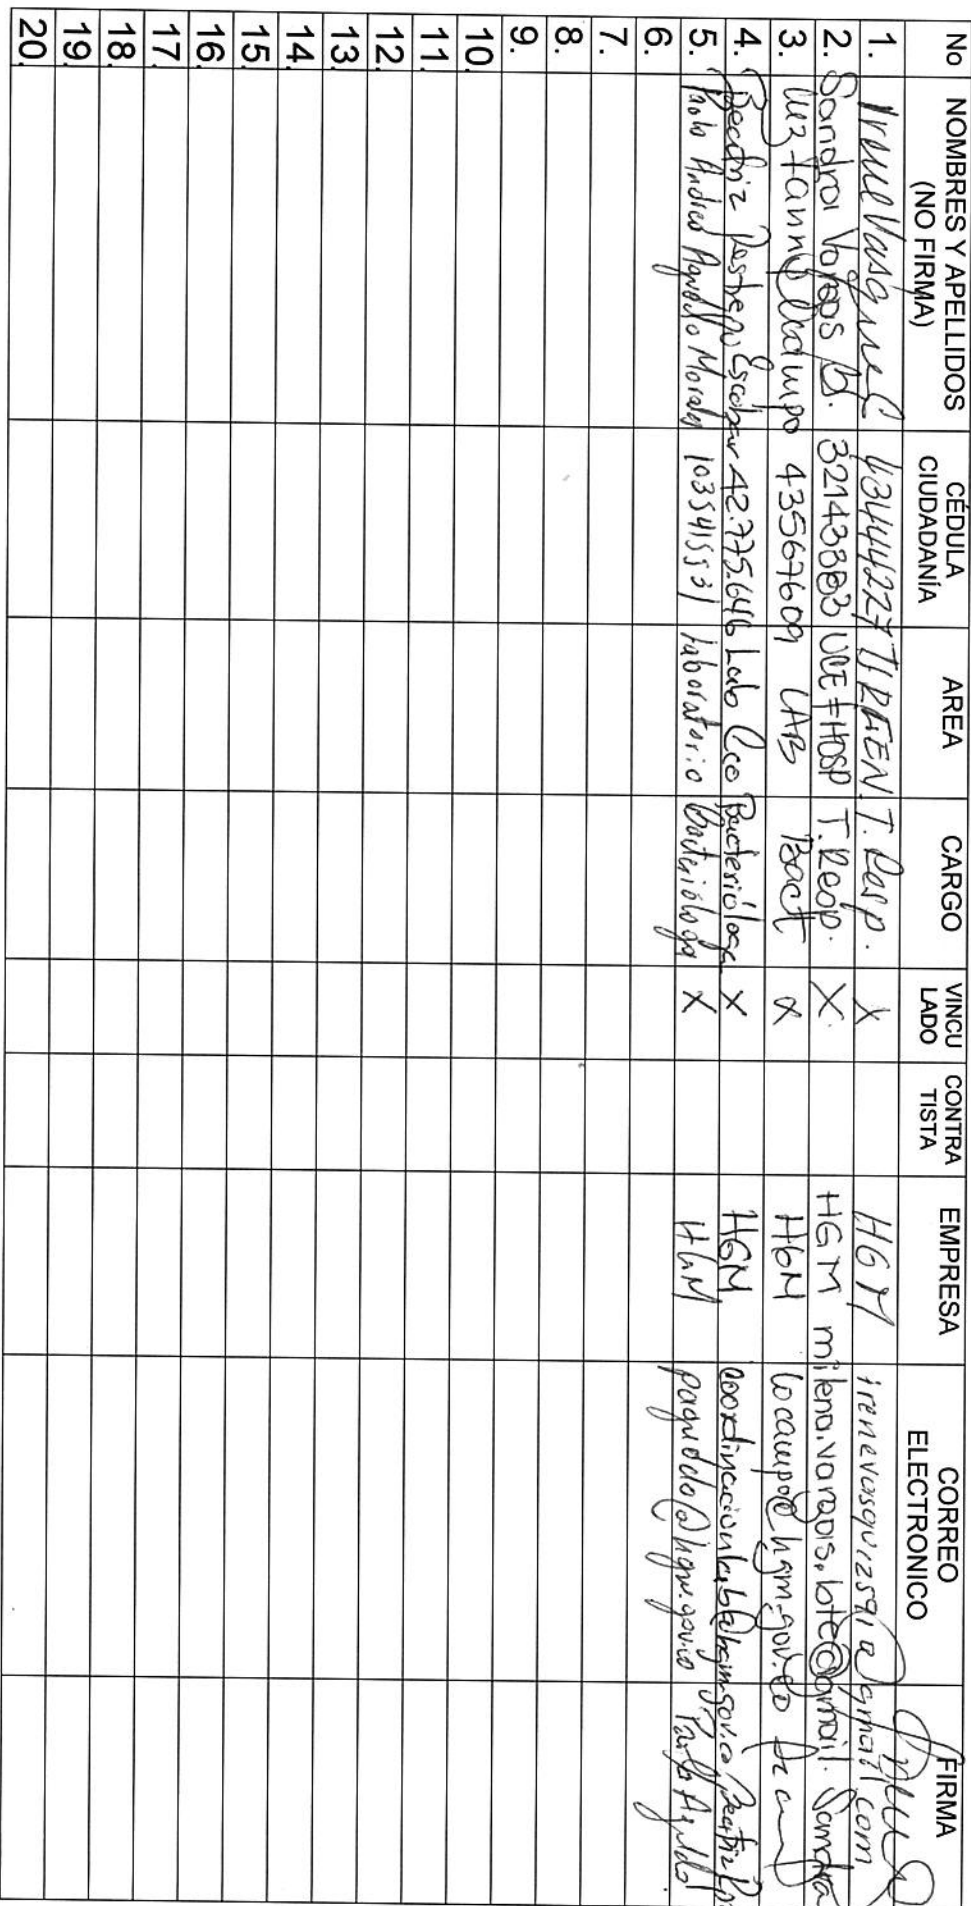 No NOMBRES Y APELLIDOS (NO FIRMA) CÉDULA CIUDADANÍA AREA CARGO VINCU LADO CONTRA TISTA EMPRESA CORREO ELECTRONICO FIRMA
1. Irene Vasquez 43444227 T. Resp. X HGM
2. Sandra Vargas 32143383 UCE + HOSP T. Resp. X. HGM milena.vargas.lote@gmail. Sandra
3. Luz Fanny Ocampo 43567609 LAB Bact X HGM locampo@hgm.gov.co
4. Beatriz Restrepo Escobar 42.775.646 Lab Cco Bacterióloga X HGM coordinacionlab@hgm.gov.co Beatriz
5. Paola Andrea Agudelo Morales 1035415531 laboratorio Bacterióloga X HGM pagudelo@hgm.gov.co Paola Agudelo
6.
7.
8.
9.
10.
11.
12.
13.
14.
15.
16.
17.
18.
19.
20.